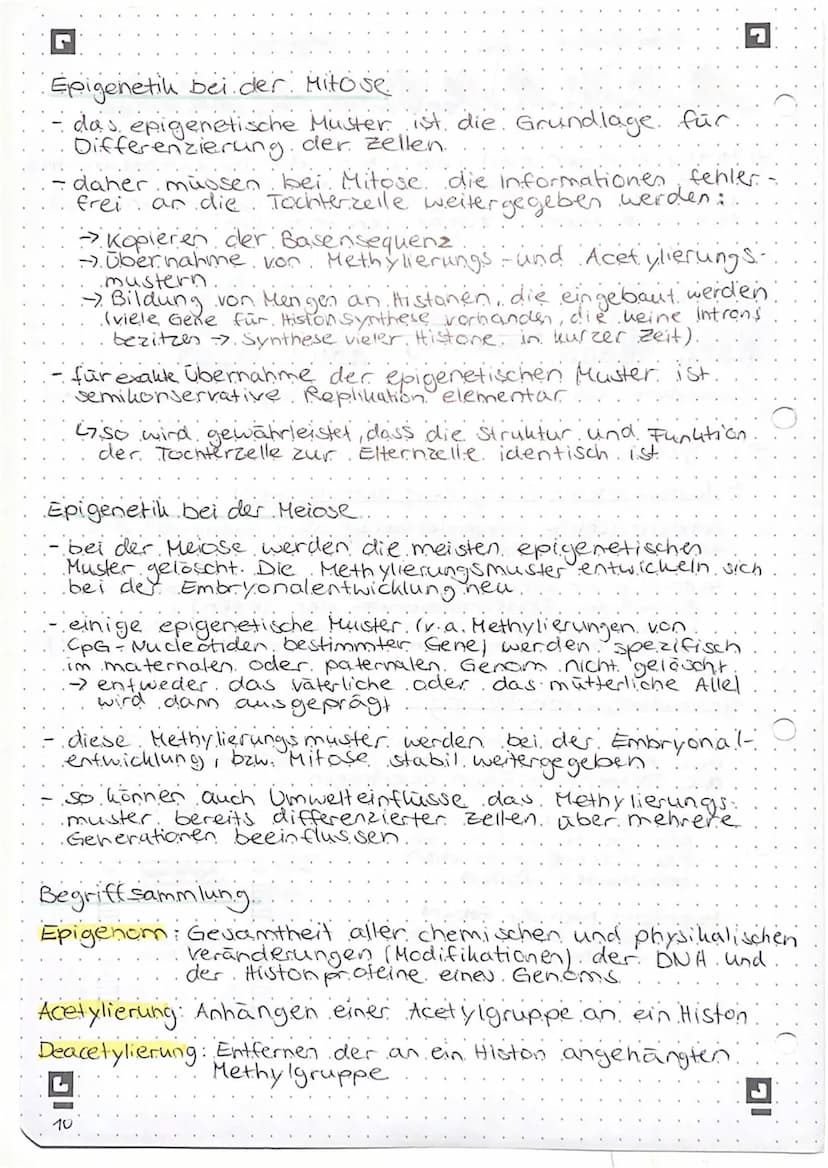 Epigenetik bei der Mitose
- das epigenetische Muster ist die Grundlage für
Differenzierung der Zellen
- daher müssen bei Mitose die Informationen fehler-
frei an die Tochterzelle weitergegeben werden:
→ Kopieren der Basensequenz
→ Übernahme von Methylierungs- und Acetylierungs-
mustern
→ Bildung von Mengen an Histonen, die eingebaut werden
(viele Gene für Histonsynthese vorhanden, die keine Introns
bezitzen → Synthese vieler Histone in kurzer Zeit)
- für exakte Übernahme der epigenetischen Muster ist
semikonservative Replikation elementar
↳ so wird gewährleistet, dass die Struktur und Funktion
der Tochterzelle zur Elternzelle identisch ist
Epigenetik bei der Meiose
- bei der Meiose werden die meisten epigenetischen
Muster gelöscht. Die Methylierungsmuster entwickeln sich
bei der Embryonalentwicklung neu
- einige epigenetische Muster (v.a. Methylierungen von
CpG-Nucleotiden bestimmter Gene) werden spezifisch
im maternalen oder paternalen Genom nicht gelöscht
→ entweder das väterliche oder das mütterliche Allel
wird dann ausgeprägt
- diese Methylierungsmuster werden bei der Embryonal-
entwicklung, bzw. Mitose stabil weitergegeben
- so können auch Umwelteinflüsse das Methylierungs-
muster bereits differenzierter Zellen über mehrere
Generationen beeinflussen
Begriffsammlung
Epigenom: Gesamtheit aller chemischen und physikalischen
Veränderungen (Modifikationen) der DNA und
der Histonproteine eines Genoms
Acetylierung: Anhängen einer Acetylgruppe an ein Histon
Deacetylierung: Entfernen der an ein Histon angehängten
Methylgruppe
10